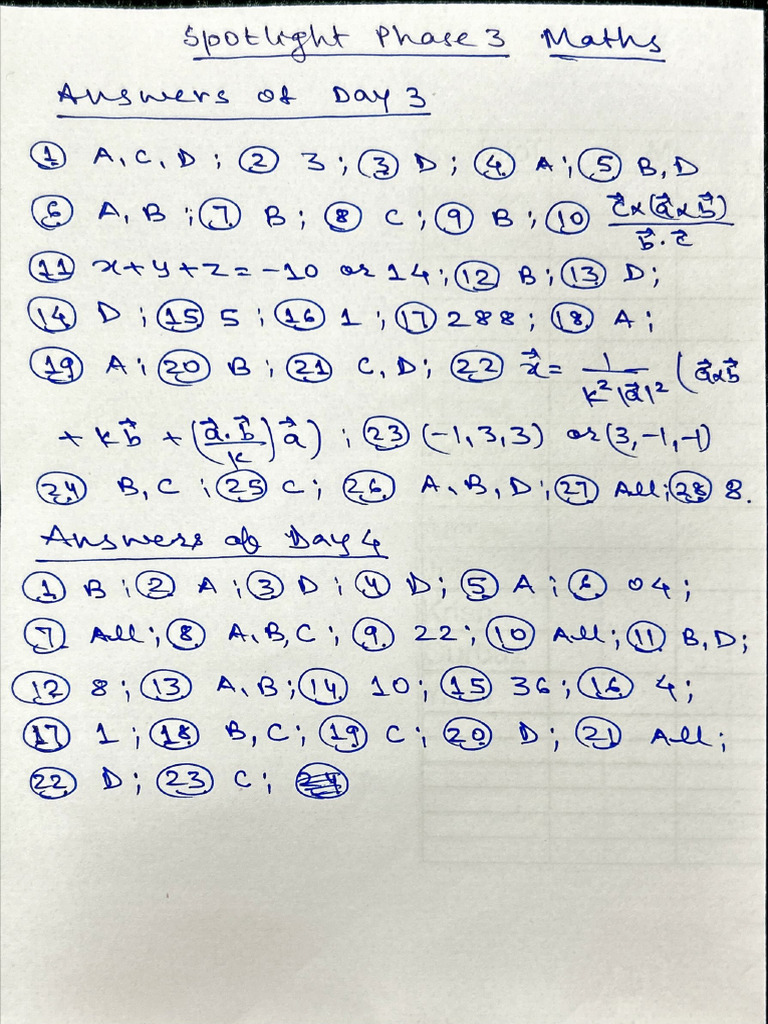 Spotlight Phase 3 Maths
Answers of Day 3
① A, C, D ; ② 3 ; ③ D ; ④ A ; ⑤ B, D
⑥ A, B ; ⑦ B ; ⑧ C ; ⑨ B ; ⑩ $\frac{\vec{c}\times(\vec{a}\times\vec{b})}{\vec{b}\cdot\vec{c}}$
⑪ x+y+z = -10 or 14 ; ⑫ B ; ⑬ D ;
⑭ D ; ⑮ 5 ; ⑯ 1 ; ⑰ 288 ; ⑱ A ;
⑲ A ; ⑳ B ; ㉑ C, D ; ㉒ $\vec{x} = \frac{1}{k^2|\vec{a}|^2}(\vec{a}\times\vec{b}$
$+ k\vec{b} + (\frac{\vec{a}.\vec{b}}{k})\vec{a})$ ; ㉓ (-1,3,3) or (3,-1,-1)
㉔ B, C ; ㉕ C ; ㉖ A, B, D ; ㉗ All ; ㉘ 8.
Answers of Day 4
① B ; ② A ; ③ D ; ④ D ; ⑤ A ; ⑥ 04 ;
⑦ All ; ⑧ A, B, C ; ⑨ 22 ; ⑩ All ; ⑪ B, D ;
⑫ 8 ; ⑬ A, B ; ⑭ 10 ; ⑮ 36 ; ⑯ 4 ;
⑰ 1 ; ⑱ B, C ; ⑲ C ; ⑳ D ; ㉑ All ;
㉒ D ; ㉓ C ;